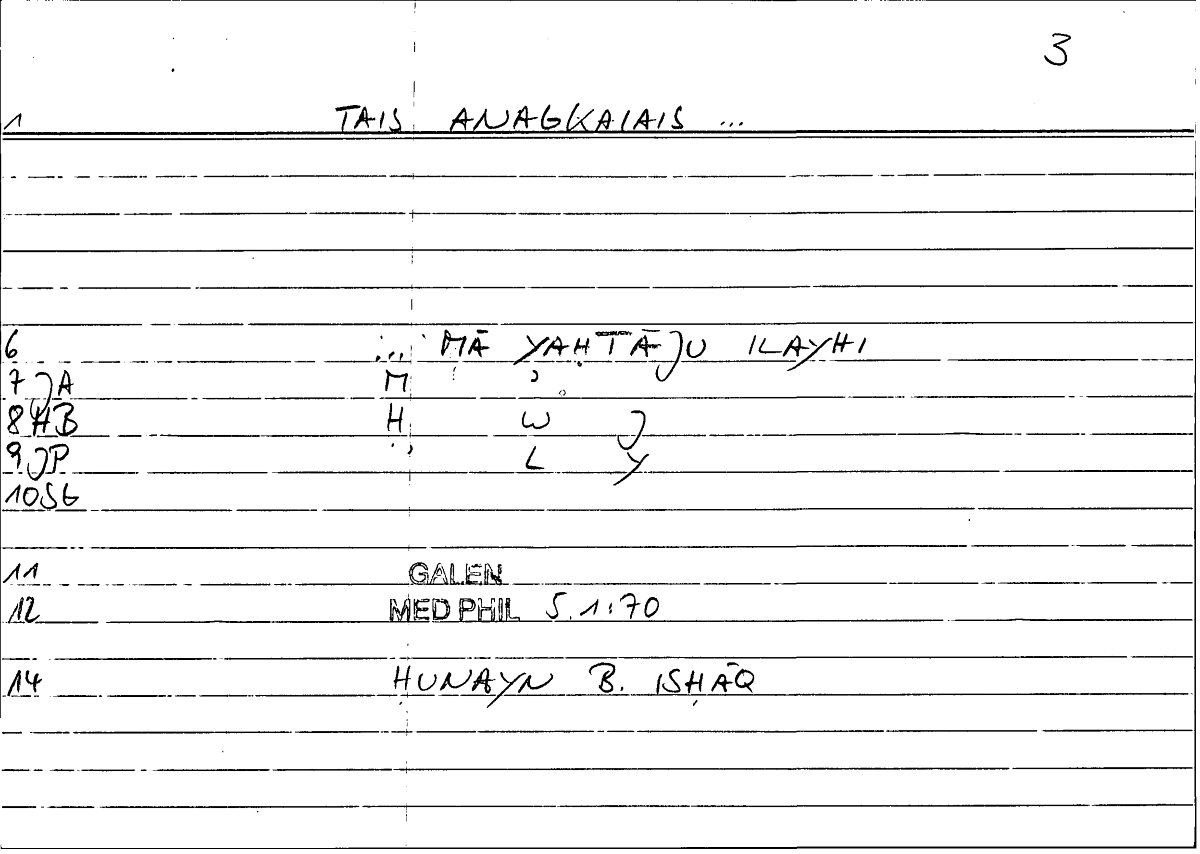 3
1 TAIS ANAGKAIAIS ...
6 ... MĀ YAḤTĀJU ILAYHI
7 JA M ʾ
8 HB H W J
9 JP L Y
10 SG
11 GALEN
12 MED PHIL 5.1:70
14 ḤUNAYN B. ISḤĀQ